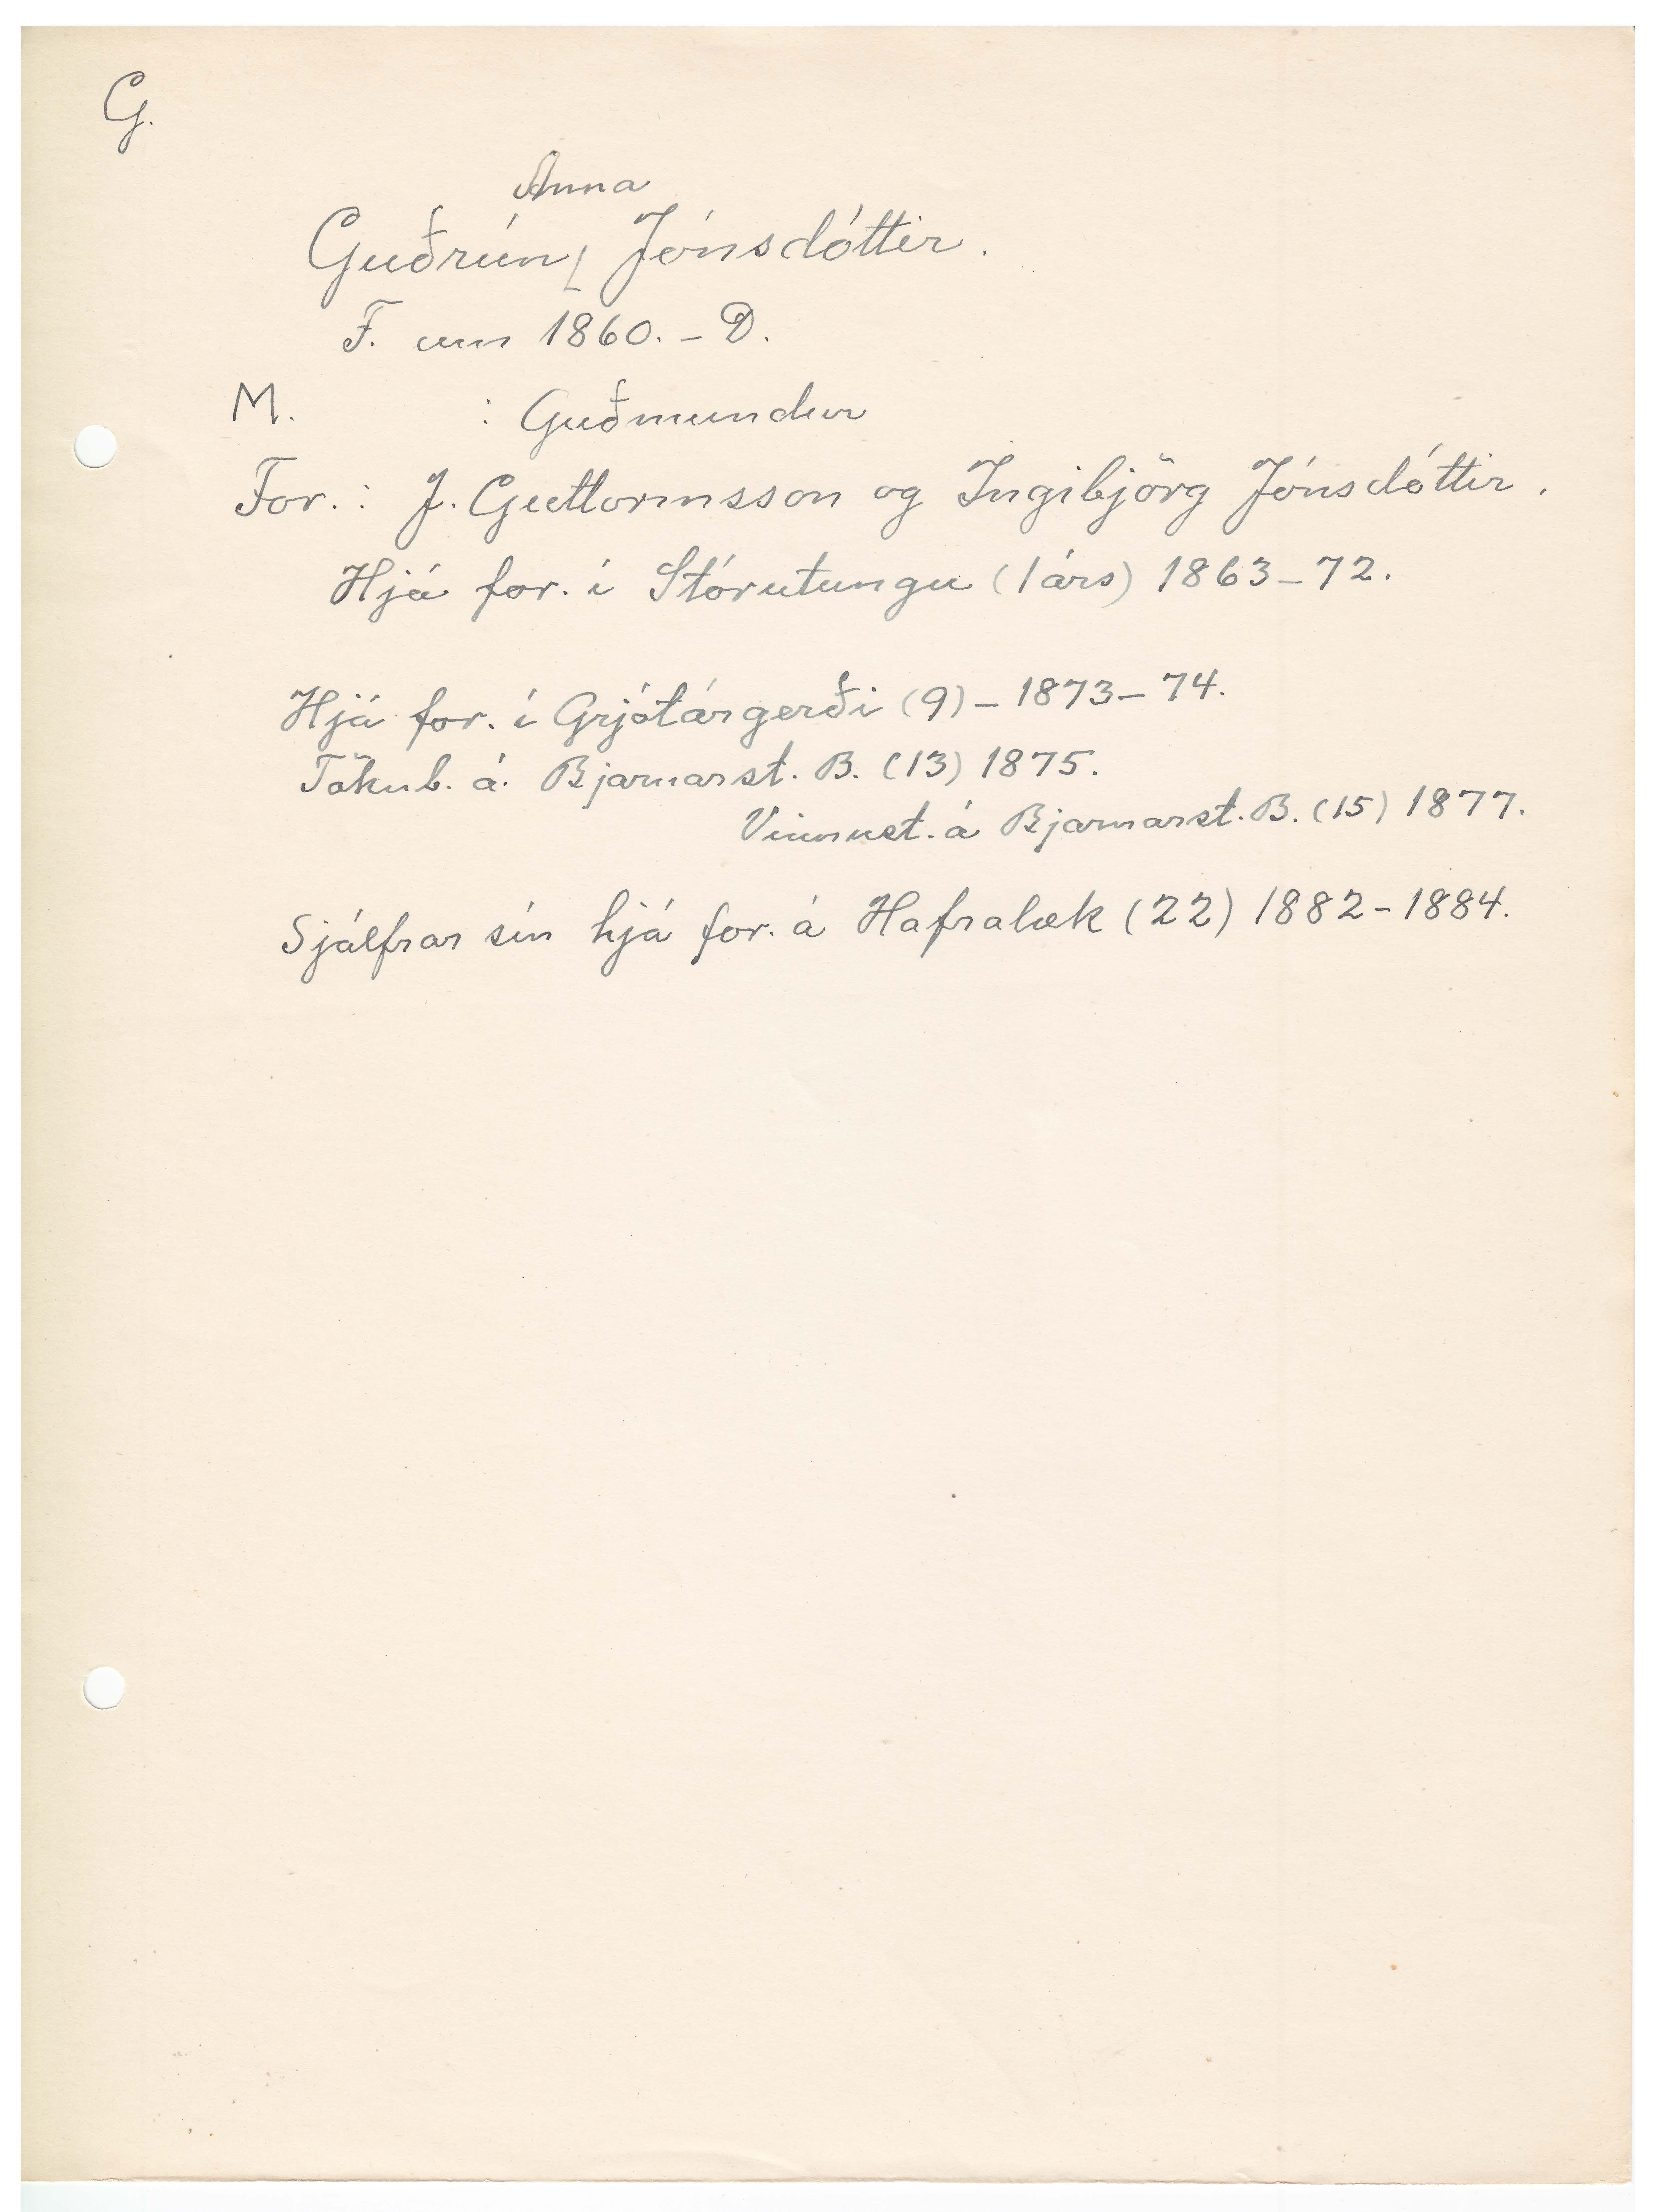 G.
Anna
Guðrún⌊ Jónsdóttir.
F. um 1860. - D.
M. : Guðmundur
For.: J. Guttormsson og Ingibjörg Jónsdóttir.
Hjá for. í Stórutungu (1 árs) 1863-72.
Hjá for. í Grjótárgerði (9) - 1873-74.
Tökub. á. Bjarnarst. B. (13) 1875.
Vinnust. á Bjarnarst. B. (15) 1877.
Sjálfrar sín hjá for. á Hafralæk (22) 1882-1884.